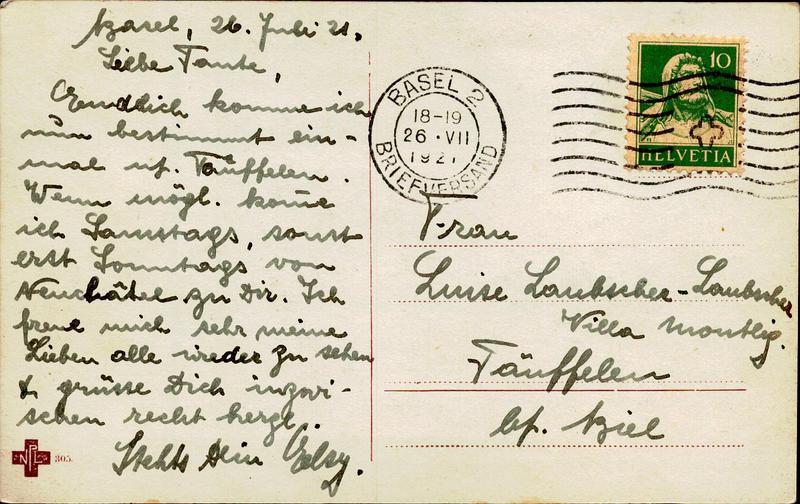 Basel, 26. Juli 21.
Liebe Tante,
Endlich komme ich
nun bestimmt ein-
mal nf. Täuffelen.
Wenn mögl. kom̄e
ich Samstags, sonst
erst Sonntags von
Neuchâtel zu Dir. Ich
freue mich sehr meine
Lieben alle wieder zu sehen
& grüsse Dich inzwi-
schen recht herzl.
Stehts Dein Elsy.
NPG
305.
BASEL 2
18-19
26·VII
1921
BRIEFVERSAND
10
HELVETIA
Frau
Luise Laubscher-Laubscher
Villa Montlig.
Täuffelen
bp. Biel